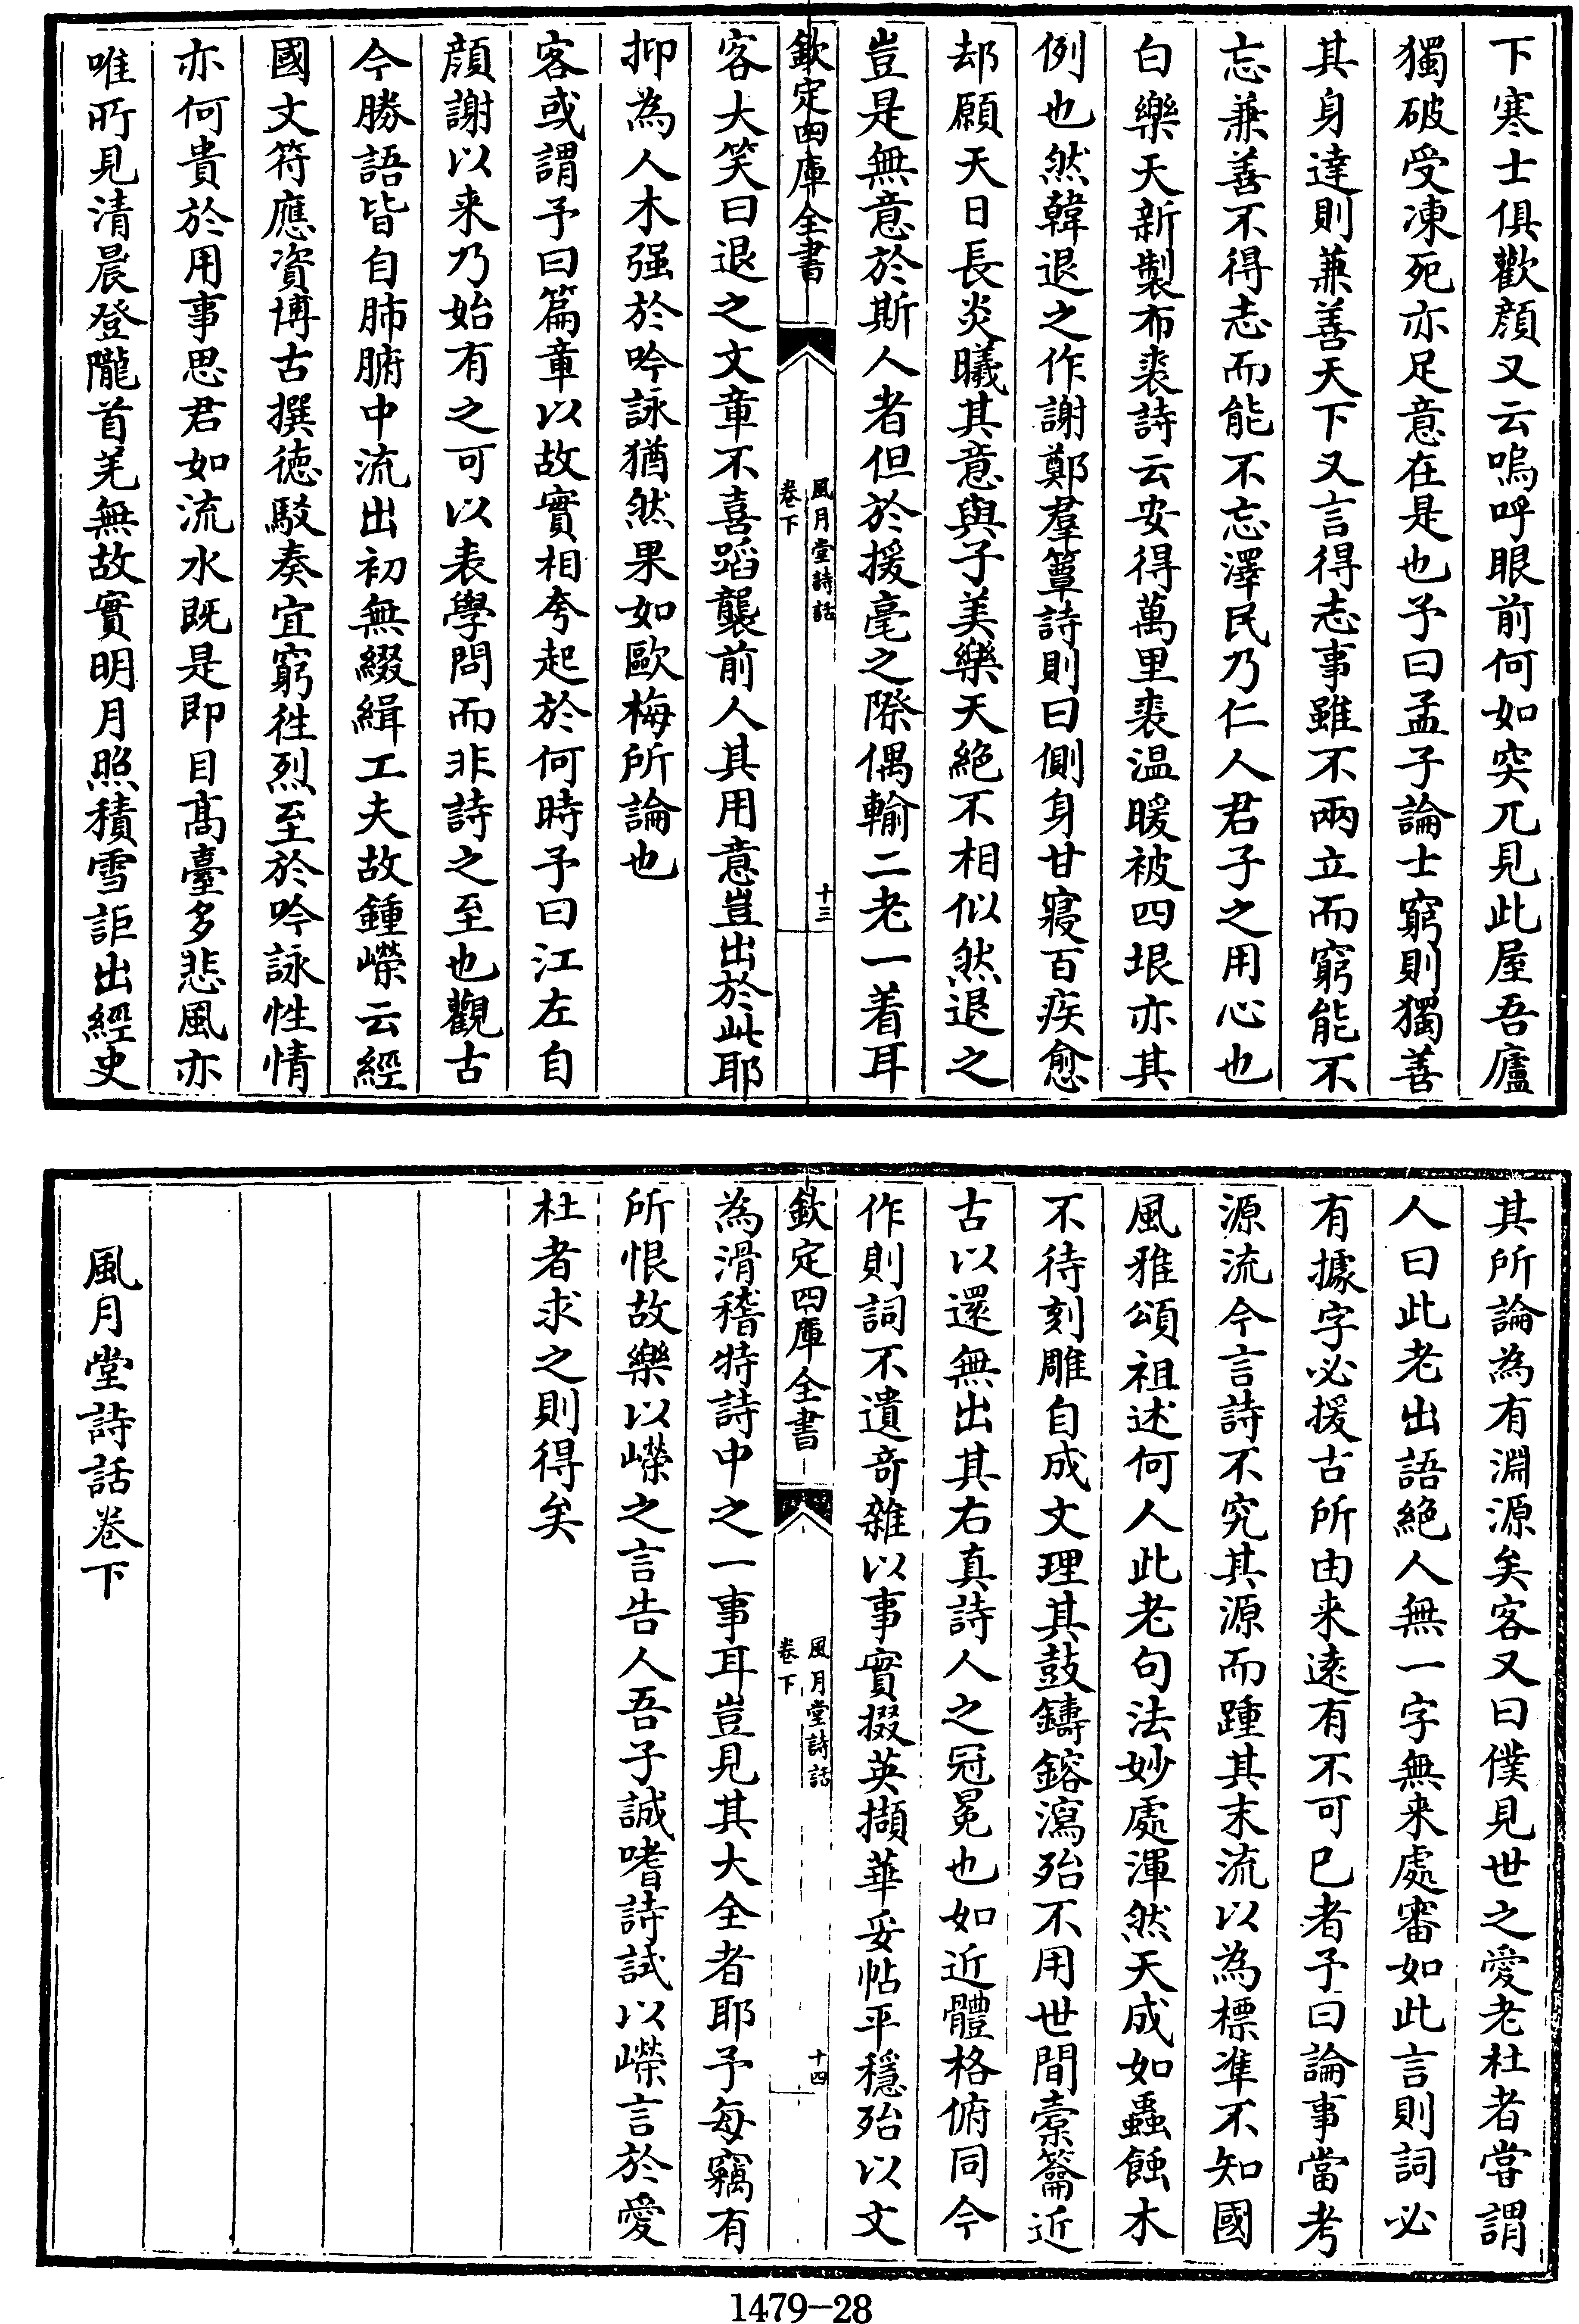 下寒士俱歡顔又云嗚呼眼前何如突兀見此屋吾廬
獨破受凍死亦足意在是也予曰孟子論士窮則獨善
其身達則兼善天下又言得志事雖不兩立而窮能不
忘兼善不得志而能不忘澤民乃仁人君子之用心也
白樂天新製布裘詩云安得萬里裘温暖被四垠亦其
例也然韓退之作謝鄭羣簟詩則曰側身甘寢百疾愈
却願天日長炎曦其意與子美樂天絶不相似然退之
豈是無意於斯人者但於援毫之際偶輸二老一着耳
欽定四庫全書
風月堂詩話
卷下
十三
客大笑曰退之文章不喜蹈襲前人其用意豈出於此耶
抑為人木强於吟詠猶然果如歐梅所論也
客或謂予曰篇章以故實相夸起於何時予曰江左自
顔謝以来乃始有之可以表學問而非詩之至也觀古
今勝語皆自肺腑中流出初無綴緝工夫故鍾嶸云經
國文符應資博古撰德駮奏宜窮徃烈至於吟詠性情
亦何貴於用事思君如流水既是即目髙臺多悲風亦
唯所見清晨登隴首羌無故實明月照積雪詎出經史
其所論為有淵源矣客又曰僕見世之愛老杜者嘗謂
人曰此老出語絶人無一字無来處審如此言則詞必
有據字必援古所由来逺有不可已者予曰論事當考
源流今言詩不究其源而踵其末流以為標準不知國
風雅頌祖述何人此老句法妙處渾然天成如蟲蝕木
不待刻雕自成文理其鼓鑄鎔瀉殆不用世間橐籥近
古以還無出其右真詩人之冠冕也如近體格俯同今
作則詞不遺奇雜以事實掇英擷華妥帖平穩殆以文
欽定四庫全書
風月堂詩話
卷下
十四
為滑稽特詩中之一事耳豈見其大全者耶予每竊有
所恨故樂以嶸之言告人吾子誠嗜詩試以嶸言於愛
杜者求之則得矣
風月堂詩話卷下
1479-28